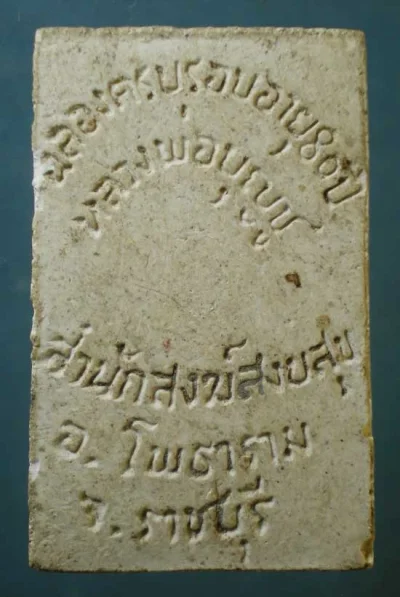 ฉลองครบรอบอายุ๘๐ปี
หลวงพ่อบุญ
สำนักสงฆ์สงบสุข
อ. โพธาราม
จ. ราชบุรี